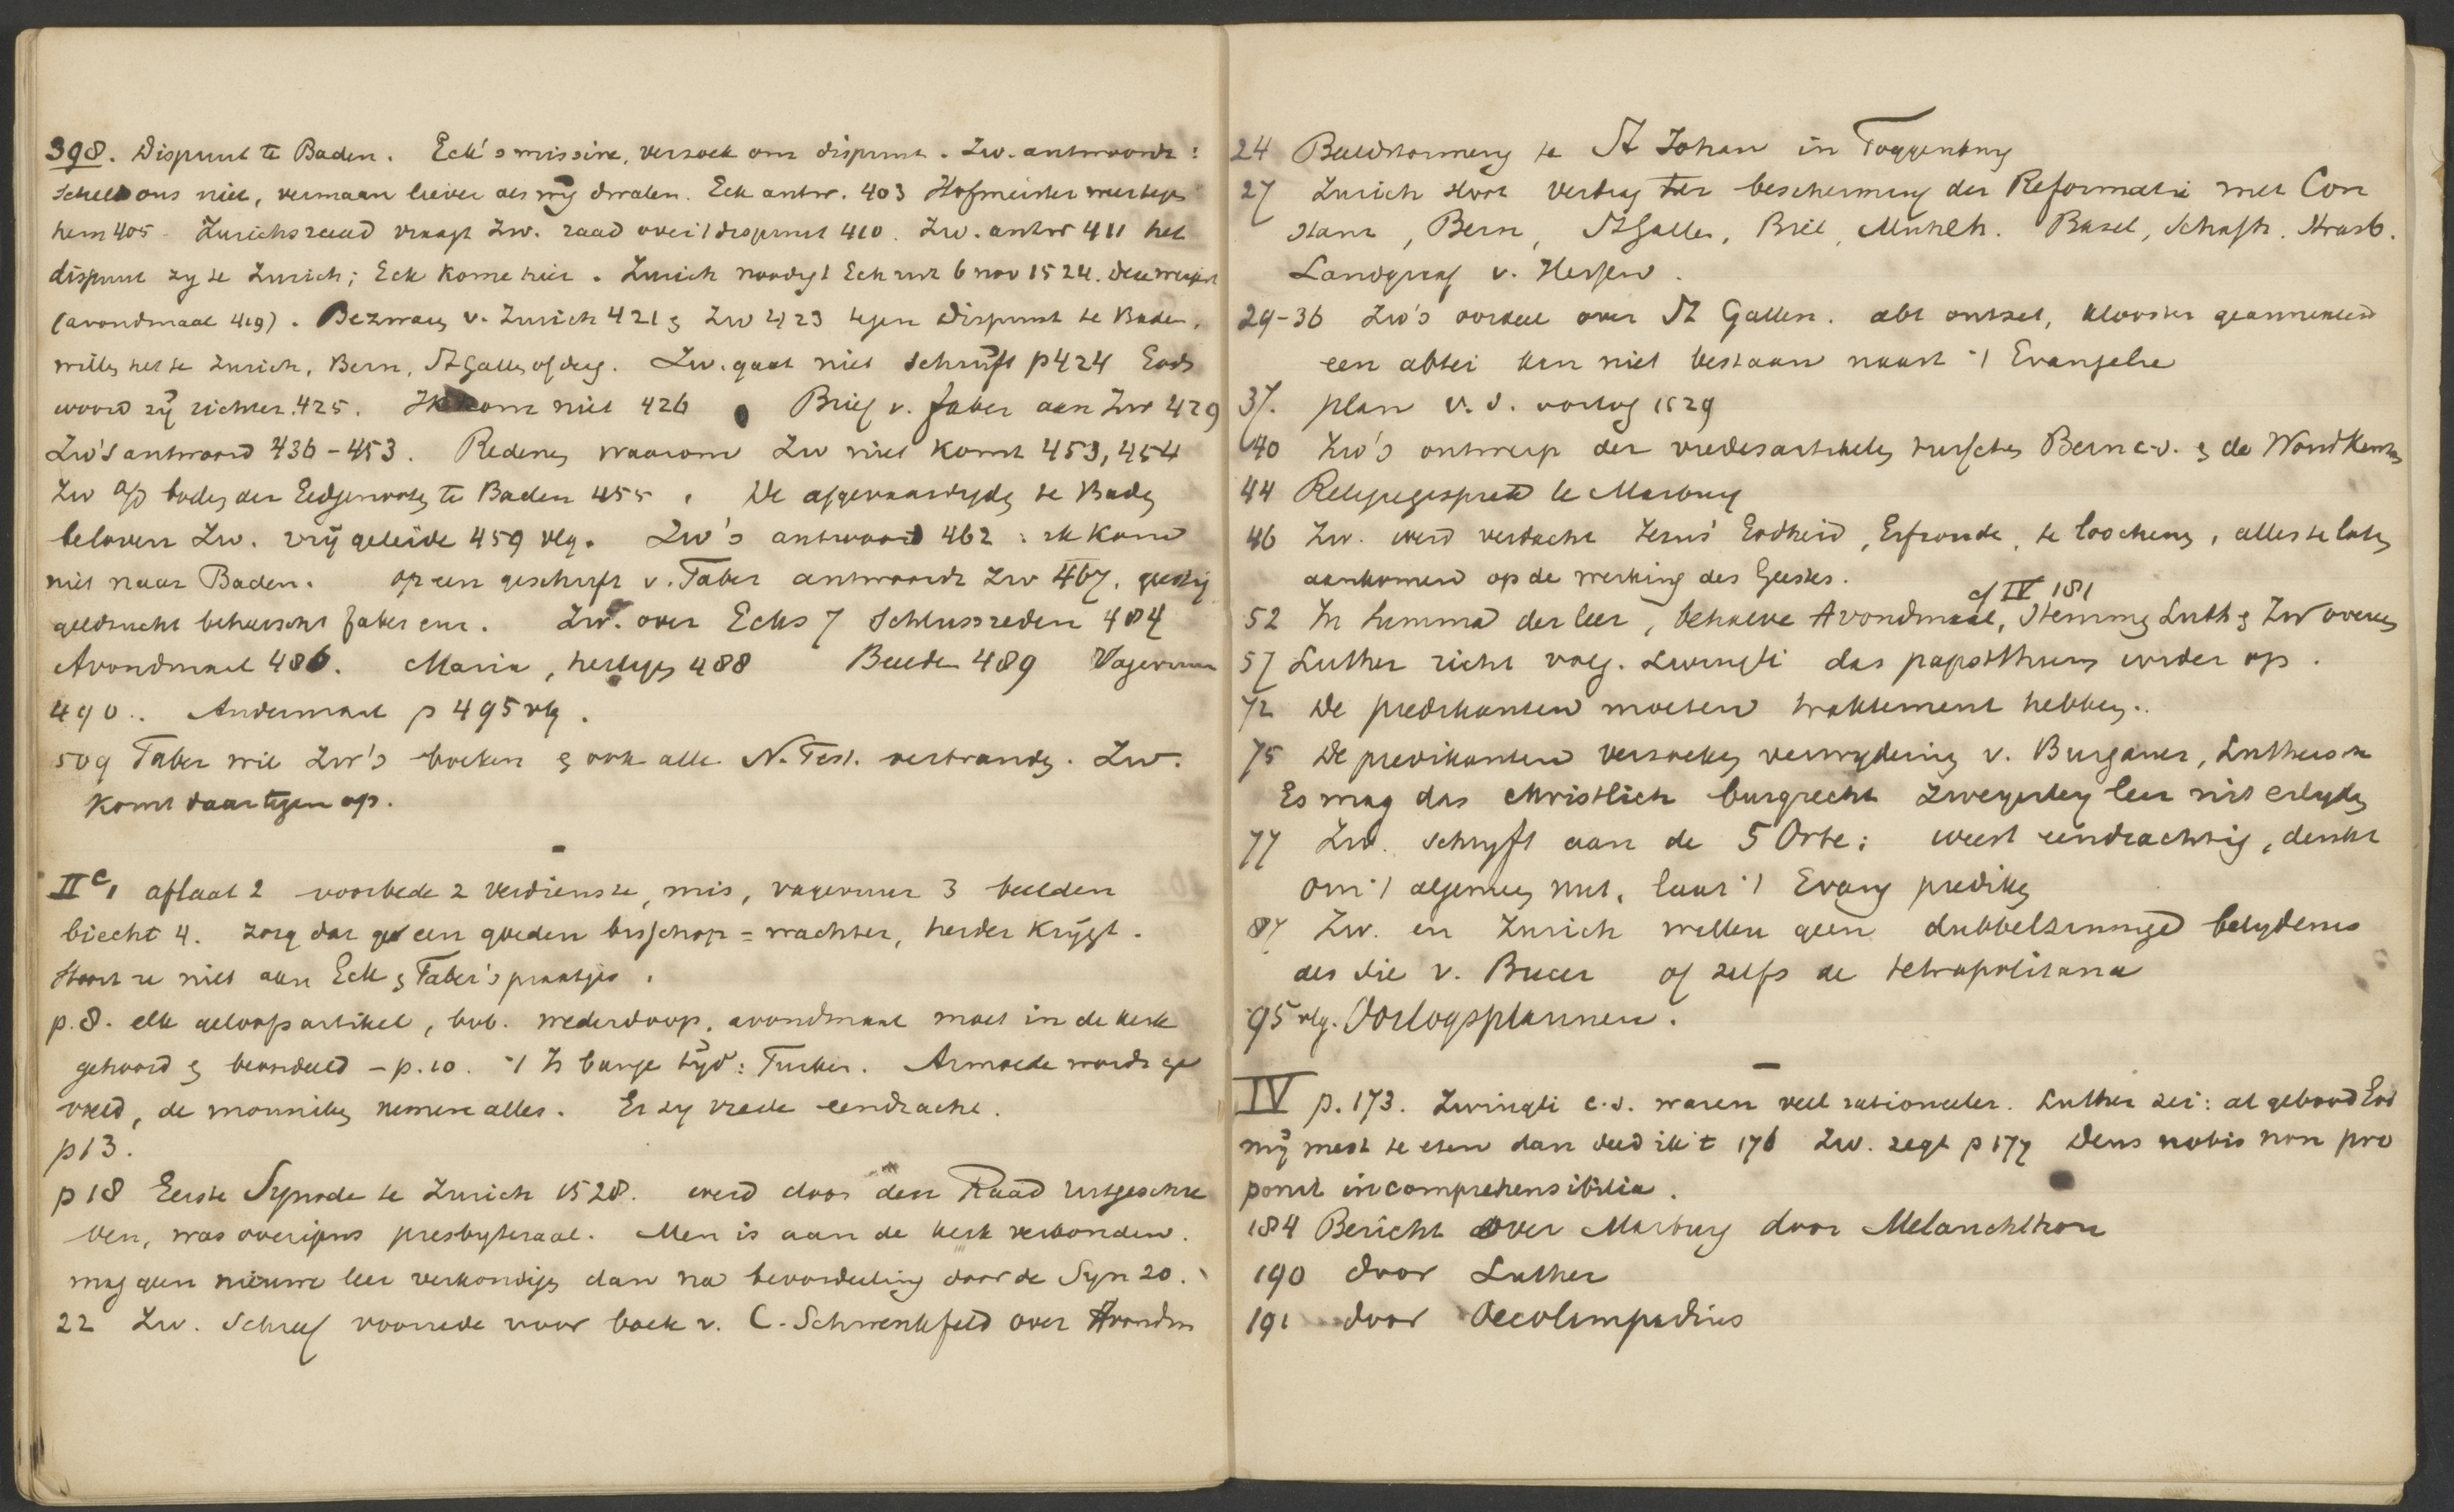 398. Disput te Baden. Eck's missive, verzoek om disput. Zw. antwoordt:
Scheld ons niet, vermaan liever als wij dwalen. Eck antw. 403 Hofmeister
hem 405. Zurichs raad vraagt Zw. raad over 't disput 410. Zw. antw 411 het
disput zy te Zurich; Eck kome hier. Zurich noodigt Eck uit 6 nov 1524. deze weigert
(avondmaal 419). Bezwaren v. Zurich 421 & Zw 423 tegen Disput te Baden,
willen het te Zurich, Bern, St Gallen of derg. Zw. gaat niet schrijft p 424 Gods
woord zij richter 425. Ik kom niet 426 Brief v. Faber aan Zw 429
Zw's antwoord 436-453. Redenen waarom Zw niet komt 453, 454
Zw aan boden der Eedgenooten te Baden 455. De afgevaardigden te Baden
beloven Zw. vrijgeleide 459 vlg. Zw's antwoord 462: ik kom
niet naar Baden. op een geschrift v. Faber antwoordt Zw 467.
geldzucht beheerscht Faber enz. Zw. over Ecks 7 Schlussreden 484
Avondmaal 486. Maria, heiligen 488 Beelden 489 Vagevuur
490.. Andermaal p 495 vlg.
509 Faber wil Zw's boeken & ook alle N. Test. verbranden. Zw.
komt daartegen op.
II c, aflaat 2 voorbede 2 verdienste, mis, vagevuur 3 beelden
biecht 4. zorg dat ge een goeden bisschop = wachter, herder krijgt.
Stoort u niet aan Eck & Faber's praatjes.
p. 8. elk geloofsartikel, bvb. wederdoop, avondmaal moet in de kerk
gehoord & beoordeeld - p. 10. 't Is bange tijd: Turken. Armoede wordt ge
vreed, de monniken nemen alles. Er zy vrede eendracht.
p 13.
p 18 Eerste Synode te Zurich 1528. werd door den Raad uitgeschre
ven, was overigens presbyteraal. Men is aan de kerk verbonden.
mag geen nieuwe leer verkondigen dan na beoordeeling door de Syn 20.
22 Zw. Schreef voorrede voor boek v. C. Schwenkfeld over Avondm
24 Beeldstormery te St Johan in Toggenburg
27 Zurich sloot verdrag ter bescherming der Reformatie met Con
stanz, Bern, St Gallen, Biel, Muhlh. Basel, Schafh. Strasb.
Landgraaf v. Hessen.
29-36 Zw's oordeel over St Gallen. abt ontzet, klooster geannexeerd
een abtei kan niet bestaan naast 't Evangelie
37. plan v. d. oorlog 1529
40 Zw's ontwerp der vredesartikelen tusschen Bern c.s. & de Woudkantons
44 Religiegesprek te Marburg
46 Zw. werd verdacht Jezus' Godheid, Erfzonde, te loochenen, alles te laten
aankomen op de werking des Geestes.
cf IV 181
52 In Summa der leer, behalve Avondmaal, stemmen Luth & Zw overeen
57 Luther richt volg. Zwingli das papstthum weder op.
72 De predikanten moeten traktement hebben.
75 De predikanten verzoeken verwydering v. Burgauer, Luthersch
Es mag das christlich burgrecht zweyerley leer nit erlyden
77 Zw. schryft aan de 5 Orte: weest eendrachtig, denkt
om 't algemeen nut, laat 't Evang prediken
87 Zw. en Zurich willen geen dubbelzinnige belydenis
als die v. Bucer of zelfs de tetrapolitana
95 vlg. Oorlogsplannen.
IV p. 173. Zwingli c.s. waren veel rationeeler. Luther zei: al gebood God
mij mest te eten dan deed ik 't 176 Zw. zegt p 177 Deus nobis non pro
ponit incomprehensibilia.
184 Bericht over Marburg door Melanchthon
190 door Luther
191 door Oecolampadius